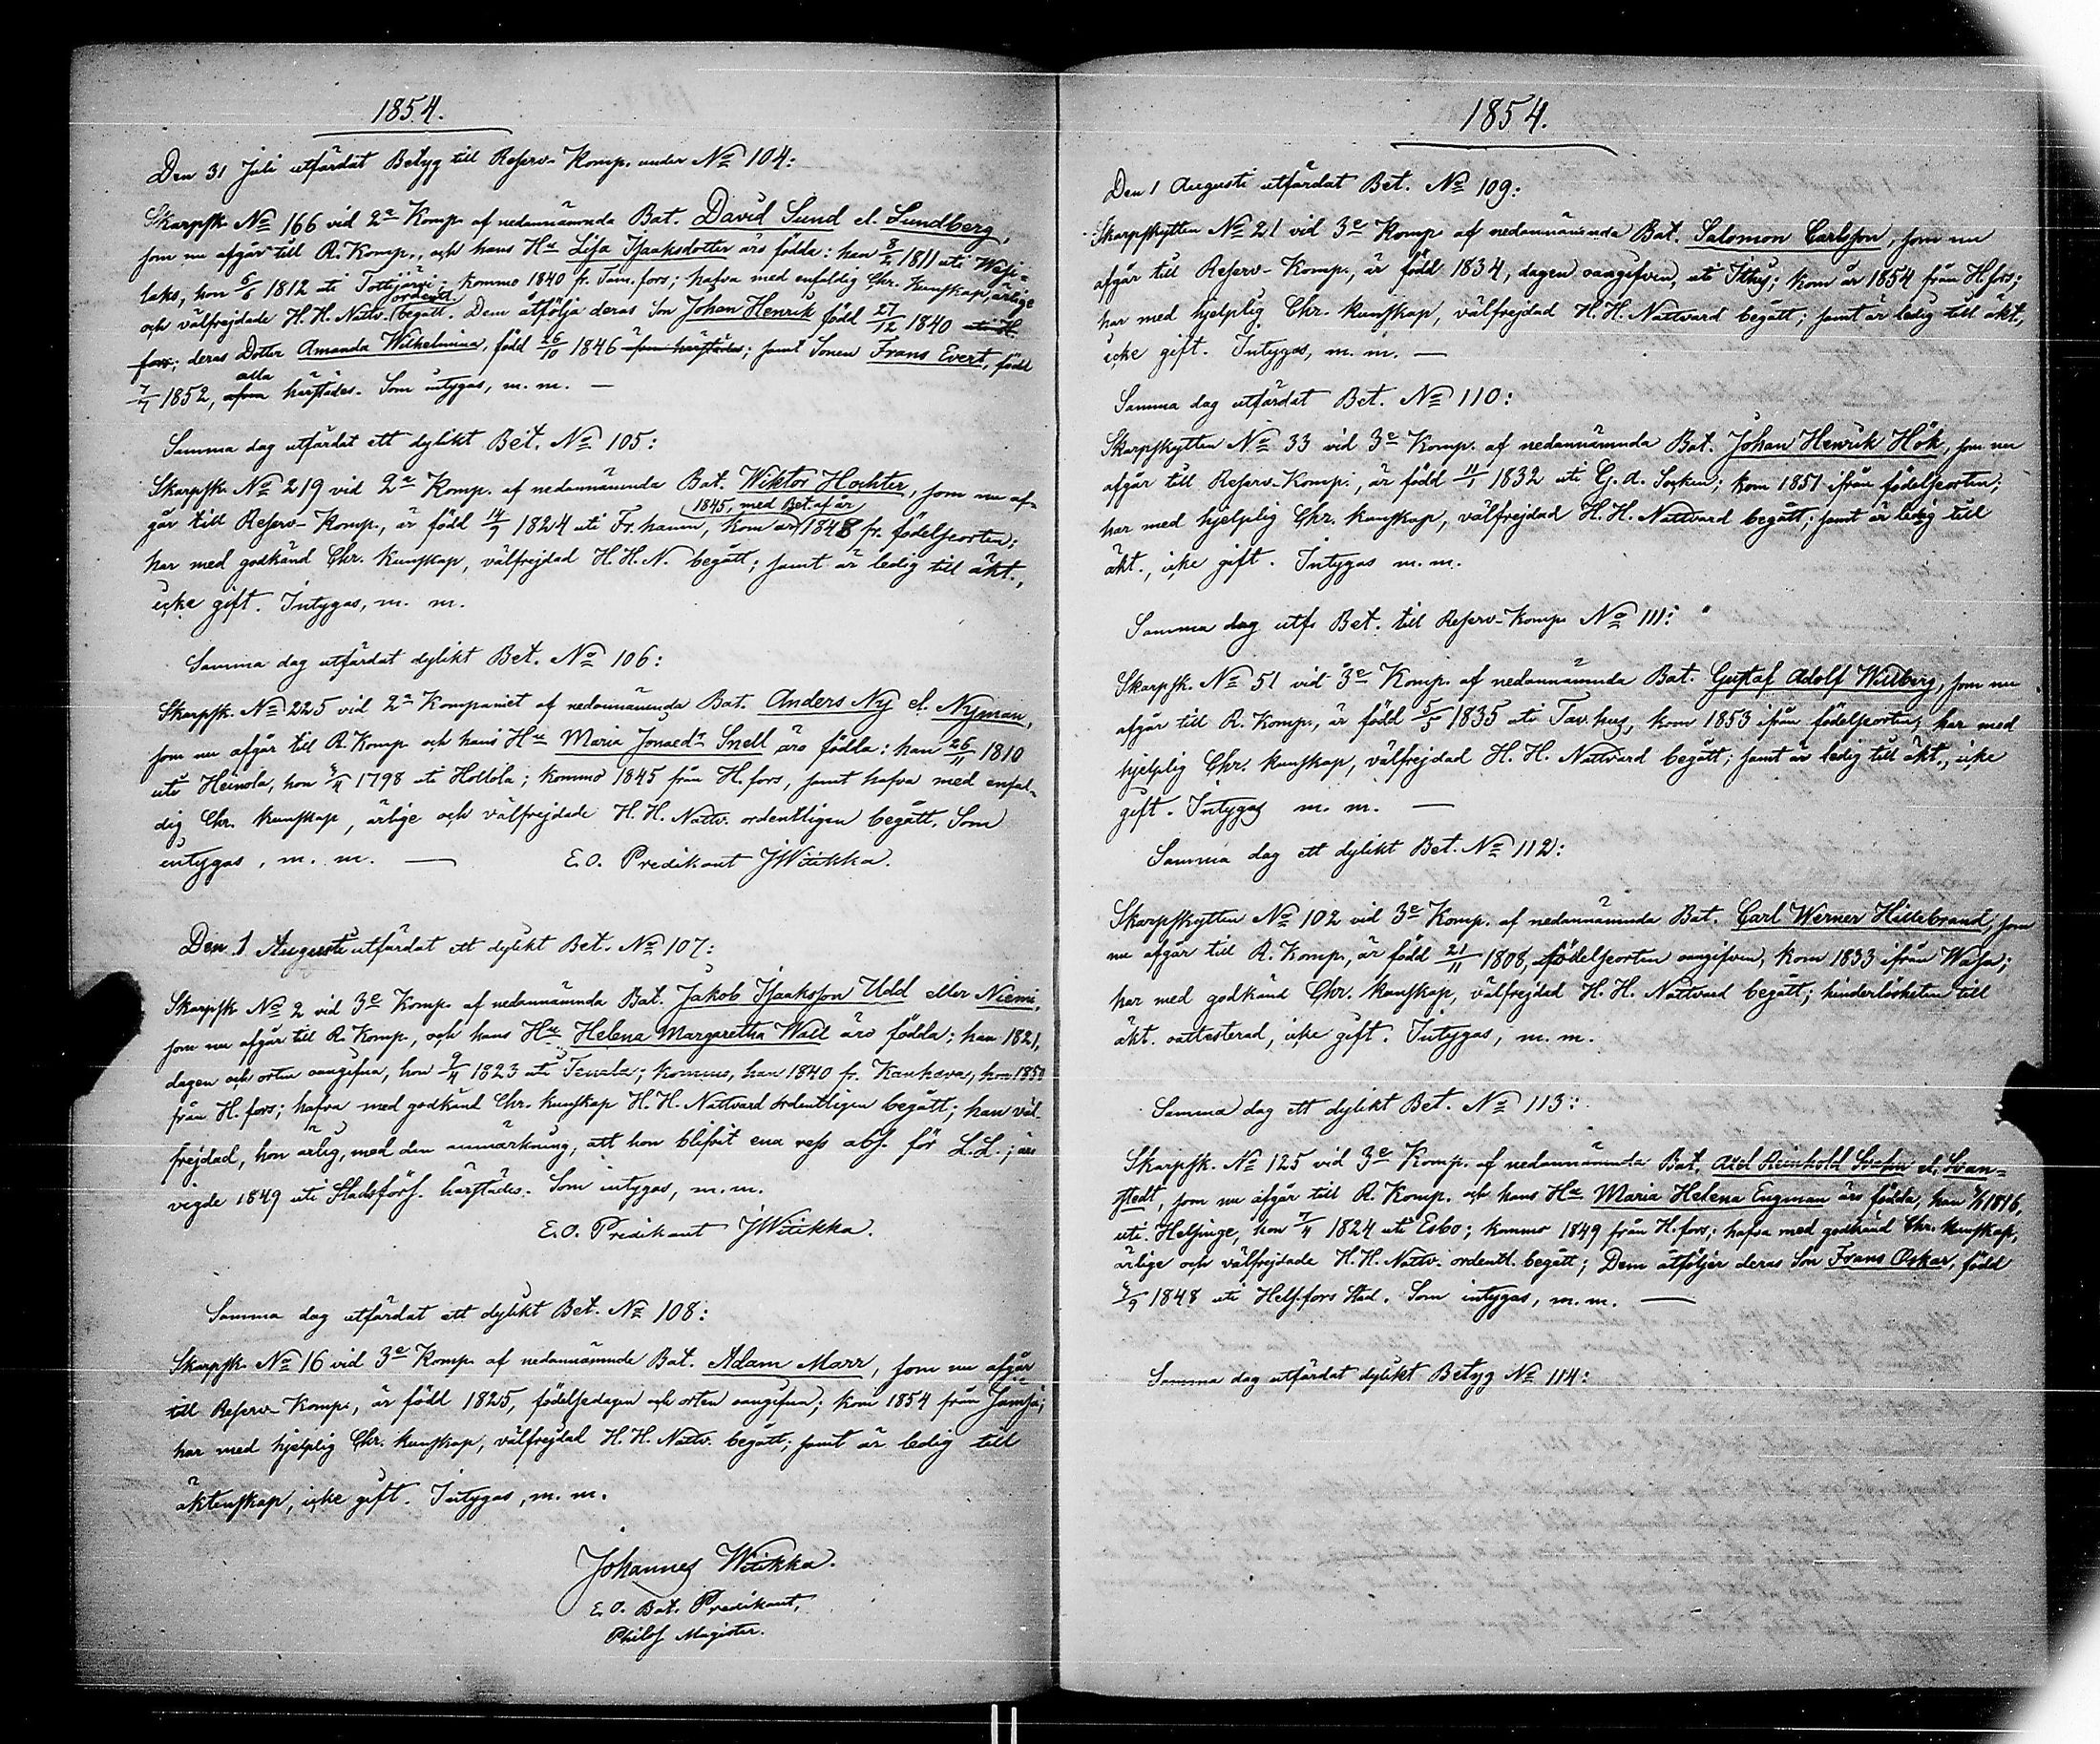 1854.
Den 31 Juli utfärdat Betyg till Reserv-Komp. under No 104:
Skarpsk. No 166 vid 2a Komp. af nedannämnda Bat. David Sund el. Sundberg,
som nu afgår till R. Komp., och hans Hu Lisa Isaaksdotter äro födda: han 8/2 1811 uti Wesi-
laks, hon 6/6 1812 uti Tottijärvi; kommo 1840 fr. Tam.fors; hafva med enfaldig Chr. kunskap, ärlige
och välfrejdade H. H. Nattv. ordentl. begått. Dem åtfölja deras Son Johan Henrik född 27/12 1840 uti H.
fors; deras Dotter Amanda Wilhelmina, född 26/10 1846 härstädes; samt Sonen Frans Evert, född
7/7 1852, alla härstädes. Som intygas, m. m. —
Samma dag utfärdat ett dylikt Bet. No 105:
Skarpsk. No 219 vid 2a Komp. af nedannämnda Bat. Wiktor Hochter, som nu af-
går till Reserv-Komp., är född 14/7 1824 uti Fr.hamn, kom år 1845, med Bet. af år 1848 fr. födelseorten;
har med godkänd Chr. kunskap, välfrejdad H. H. N. begått; samt är ledig till äkt.,
icke gift. Intygas, m. m.
Samma dag utfärdat dylikt Bet. No 106:
Skarpsk. No 225 vid 2a Kompaniet af nedannämnda Bat. Anders Ny el. Nyman,
som nu afgår till R. Komp. och hans Hu Maria Jonaedr Snell äro födda: han 26/11 1810
uti Heinola, hon 1798 uti Hollola; kommo 1845 från H.fors, samt hafva med enfal-
dig Chr. kunskap, ärlige och välfrejdade H. H. Nattv. ordentligen begått. Som
intygas, m. m. — E. O. Predikant JWiikka.
Den 1 Augusti utfärdat ett dylikt Bet. No 107:
Skarpsk. No 2 vid 3e Komp. af nedannämnda Bat. Jakob Isaaksson Udd eller Niemi,
som nu afgår till R. Komp., och hans Hu Helena Margaretha Wall äro födda; han 1821,
dagen och orten oangifna, hon 9/4 1823 uti Tenala; kommo, han 1840 fr. Kauhava, hon 1850
från H. fors; hafva med godkänd Chr. kunskap H. H. Nattvard ordentligen begått; han väl-
frejdad, hon ärlig, med den anmärkning, att hon blifvit ena ress abs. för L. L.; äro
vigde 1849 uti Stadsförs. härstädes. Som intygas, m. m.
E. O. Predikant JWiikka.
Samma dag utfärdat ett dylikt Bet. No 108:
Skarpsk. No 16 vid 3e Komp. af nedannämnde Bat. Adam Marr, som nu afgår
till Reserv-Komp., är född 1825, födelsedagen och orten oangifna; kom 1854 från Jämsä;
har med hjelplig Chr. kunskap, välfrejdad H. H. Nattv. begått; samt är ledig till
äktenskap, icke gift. Intygas, m. m.
Johannes Wiikka.
E. O. Bat. Predikant,
Philos. Magister.
1854.
Den 1 Augusti utfärdat Bet. No 109:
Skarpskytten No 21 vid 3e Komp af nedannämnda Bat. Salomon Carlsson, som nu
afgår till Reserv-Komp., är född 1834, dagen oangifven, uti Ithis; kom år 1854 från H.fors;
har med hjelplig Chr. kunskap, välfrejdad H. H. Nattvard begått; samt är ledig till äkt.,
icke gift. Intygas, m. m. —
Samma dag utfärdat Bet. No 110:
Skarpskytten No 33 vid 3e Komp. af nedannämnda Bat. Johan Henrik Hök, som nu
afgår till Reserv-Komp., är född 11/1 1832 uti G. a. Socken; kom 1851 ifrån födelseorten;
har med hjelplig Chr. kunskap, välfrejdad H. H. Nattvard begått; samt är ledig till
äkt., icke gift. Intygas m. m.
Samma dag utf. Bet. till Reserv-Komp. No 111:
Skarpsk. No 51 vid 3e Komp. af nedannämnda Bat. Gustaf Adolf Widberg, som nu
afgår till R. Komp., är född 5/5 1835 uti Tav.hus, kom 1853 ifrån födelseorten, har med
hjelplig Chr. kunskap, välfrejdad H. H. Nattvard begått; samt är ledig till äkt., icke
gift. Intygas m. m. —
Samma dag ett dylikt Bet. No 112:
Skarpskytten No 102 vid 3e Komp. af nedannämnda Bat. Carl Werner Hillebrand, som
nu afgår till R. Komp., är född 21/11 1808, födelseorten oangifven, kom 1833 ifrån Wasa;
har med godkänd Chr. kunskap, välfrejdad H. H. Nattvard begått; hinderlösheten till
äkt. oattesterad, icke gift. Intygas, m. m.
Samma dag ett dylikt Bet. No 113:
Skarpsk. No 125 vid 3e Komp. af nedannämnda Bat. Axel Reinhold Svahn el. Svan-
stedt, som nu afgår till R. Komp. och hans Hu Maria Helena Engman äro födda, han 1816,
uti Helsinge, hon 7/4 1824 uti Esbo; kommo 1849 från H. fors; hafva med godkänd Chr. kunskap,
ärlige och välfrejdade H. H. Nattv. ordentl. begått; Dem åtföljer deras Son Frans Oskar, född
1848 uti Hels.fors Stad. Som intygas, m. m. —
Samma dag utfärdat dylikt Betyg No 114: